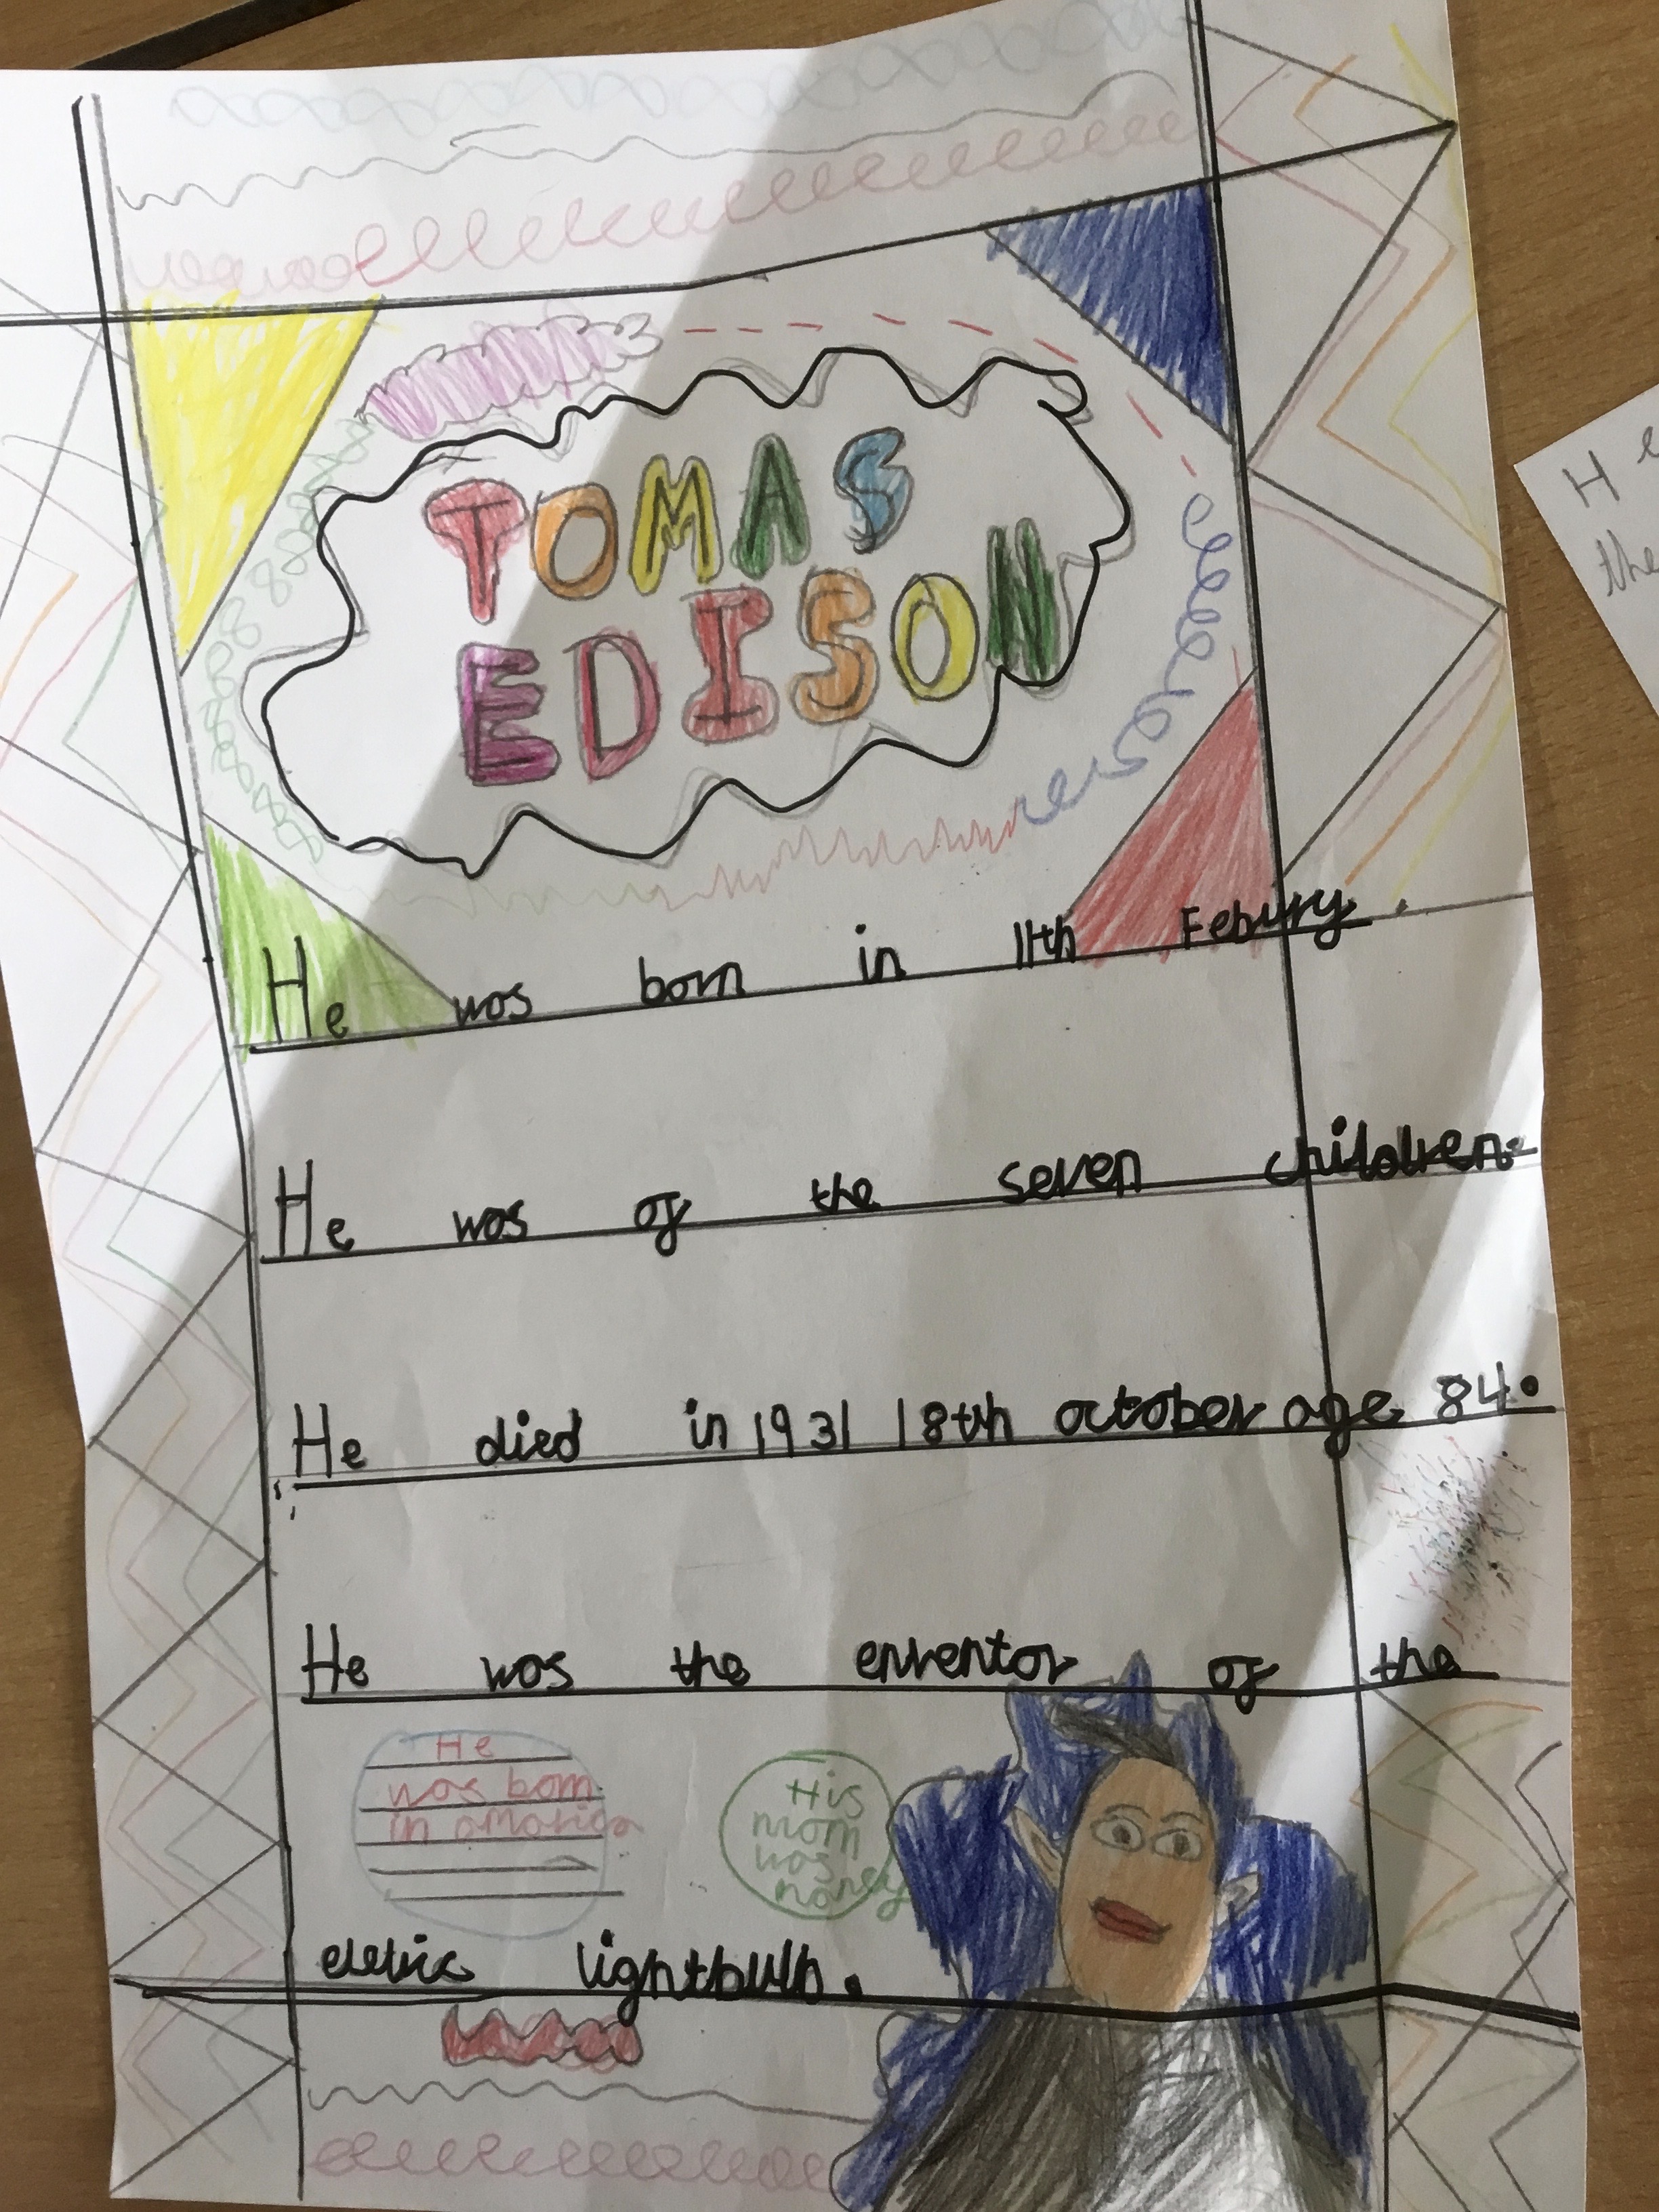 TOMAS
EDISON
He was born in 11th Febury.
He was of the seven children.
He died in 1931 18th october age 84.
He was the enventor of the
He
was born
in amarica
His
mom
was
nancy
eletric lightbulb.
H
the